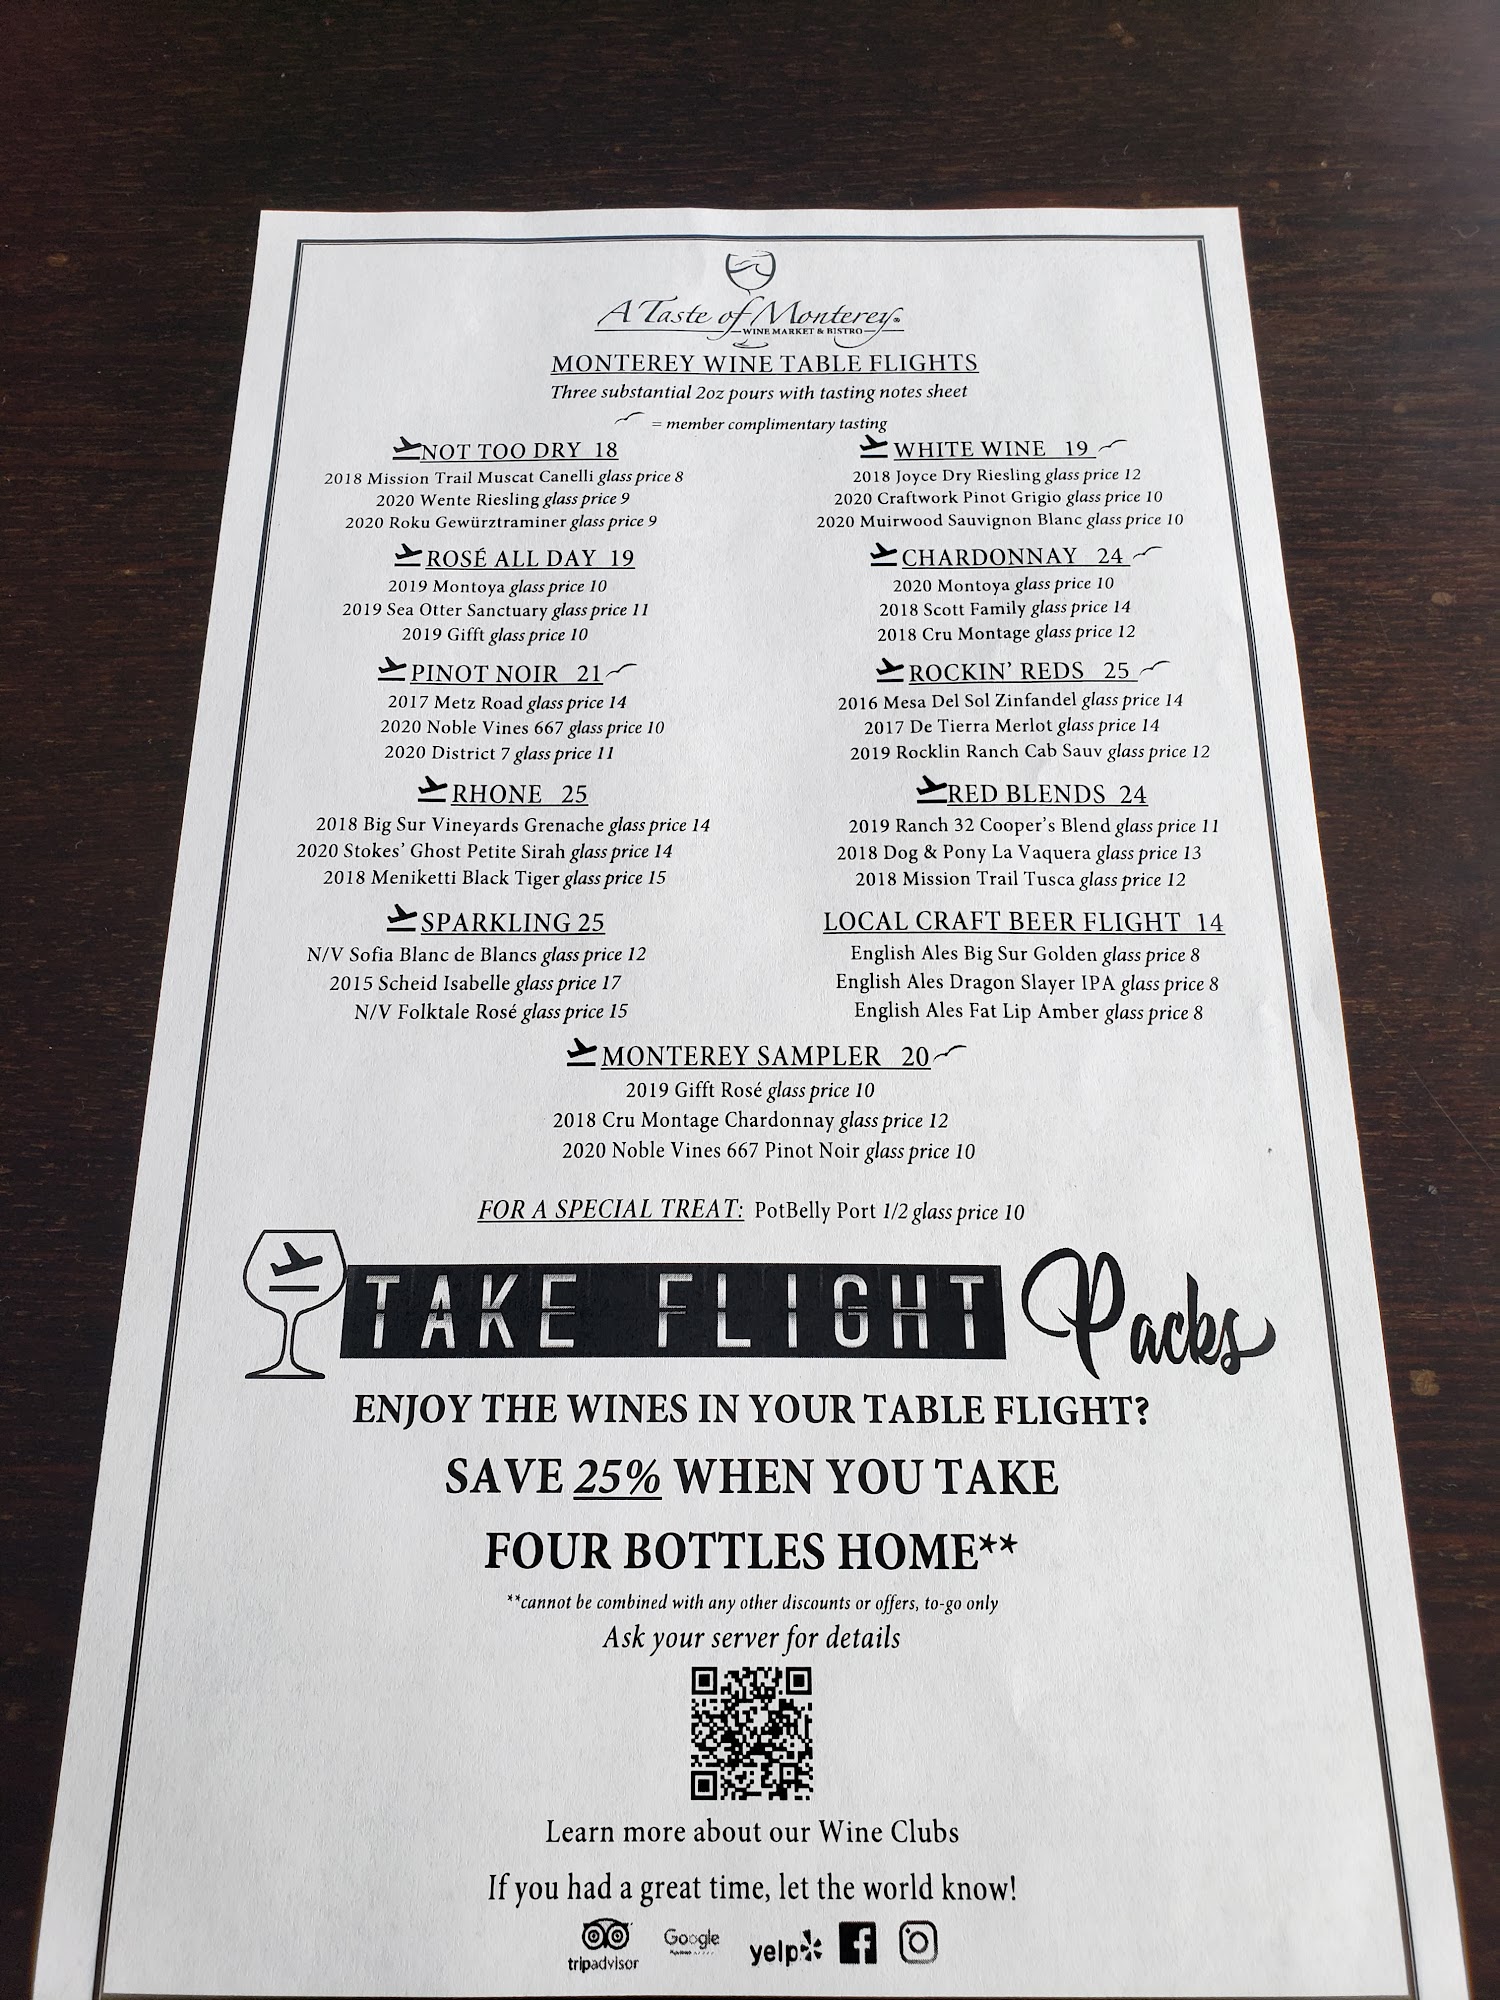 A Taste of Monterey
WINE MARKET & BISTRO
MONTEREY WINE TABLE FLIGHTS
Three substantial 2oz pours with tasting notes sheet
= member complimentary tasting
NOT TOO DRY 18
2018 Mission Trail Muscat Canelli glass price 8
2020 Wente Riesling glass price 9
2020 Roku Gewürztraminer glass price 9
WHITE WINE 19
2018 Joyce Dry Riesling glass price 12
2020 Craftwork Pinot Grigio glass price 10
2020 Muirwood Sauvignon Blanc glass price 10
ROSÉ ALL DAY 19
2019 Montoya glass price 10
2019 Sea Otter Sanctuary glass price 11
2019 Gifft glass price 10
CHARDONNAY 24
2020 Montoya glass price 10
2018 Scott Family glass price 14
2018 Cru Montage glass price 12
PINOT NOIR 21
2017 Metz Road glass price 14
2020 Noble Vines 667 glass price 10
2020 District 7 glass price 11
ROCKIN' REDS 25
2016 Mesa Del Sol Zinfandel glass price 14
2017 De Tierra Merlot glass price 14
2019 Rocklin Ranch Cab Sauv glass price 12
RHONE 25
2018 Big Sur Vineyards Grenache glass price 14
2020 Stokes' Ghost Petite Sirah glass price 14
2018 Meniketti Black Tiger glass price 15
RED BLENDS 24
2019 Ranch 32 Cooper's Blend glass price 11
2018 Dog & Pony La Vaquera glass price 13
2018 Mission Trail Tusca glass price 12
SPARKLING 25
N/V Sofia Blanc de Blancs glass price 12
2015 Scheid Isabelle glass price 17
N/V Folktale Rosé glass price 15
LOCAL CRAFT BEER FLIGHT 14
English Ales Big Sur Golden glass price 8
English Ales Dragon Slayer IPA glass price 8
English Ales Fat Lip Amber glass price 8
MONTEREY SAMPLER 20
2019 Gifft Rosé glass price 10
2018 Cru Montage Chardonnay glass price 12
2020 Noble Vines 667 Pinot Noir glass price 10
FOR A SPECIAL TREAT: PotBelly Port 1/2 glass price 10
TAKE FLIGHT Packs
ENJOY THE WINES IN YOUR TABLE FLIGHT?
SAVE 25% WHEN YOU TAKE
FOUR BOTTLES HOME**
**cannot be combined with any other discounts or offers, to-go only
Ask your server for details
Learn more about our Wine Clubs
If you had a great time, let the world know!
tripadvisor
Google
yelp